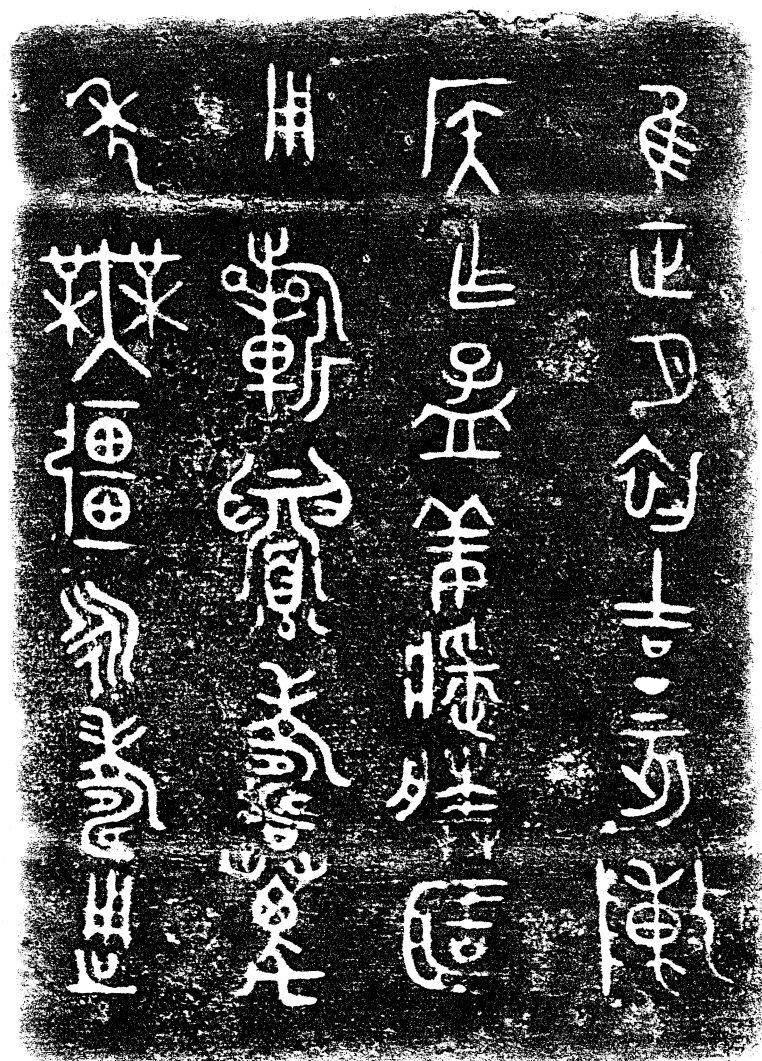 隹正月初吉丁亥敶
侯乍孟姜簠
用祈眉壽萬
年無疆永壽用之